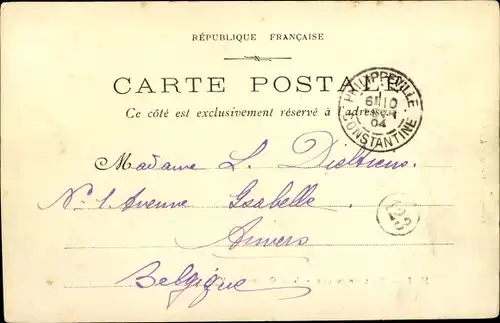 RÉPUBLIQUE FRANÇAISE
CARTE POSTALE
Ce côté est exclusivement réservé à l'adresse
PHILIPPEVILLE
6 10
04
CONSTANTINE
Madame L. Dieltiens
N° 1. Avenue Isabelle
123
Anvers
Belgique